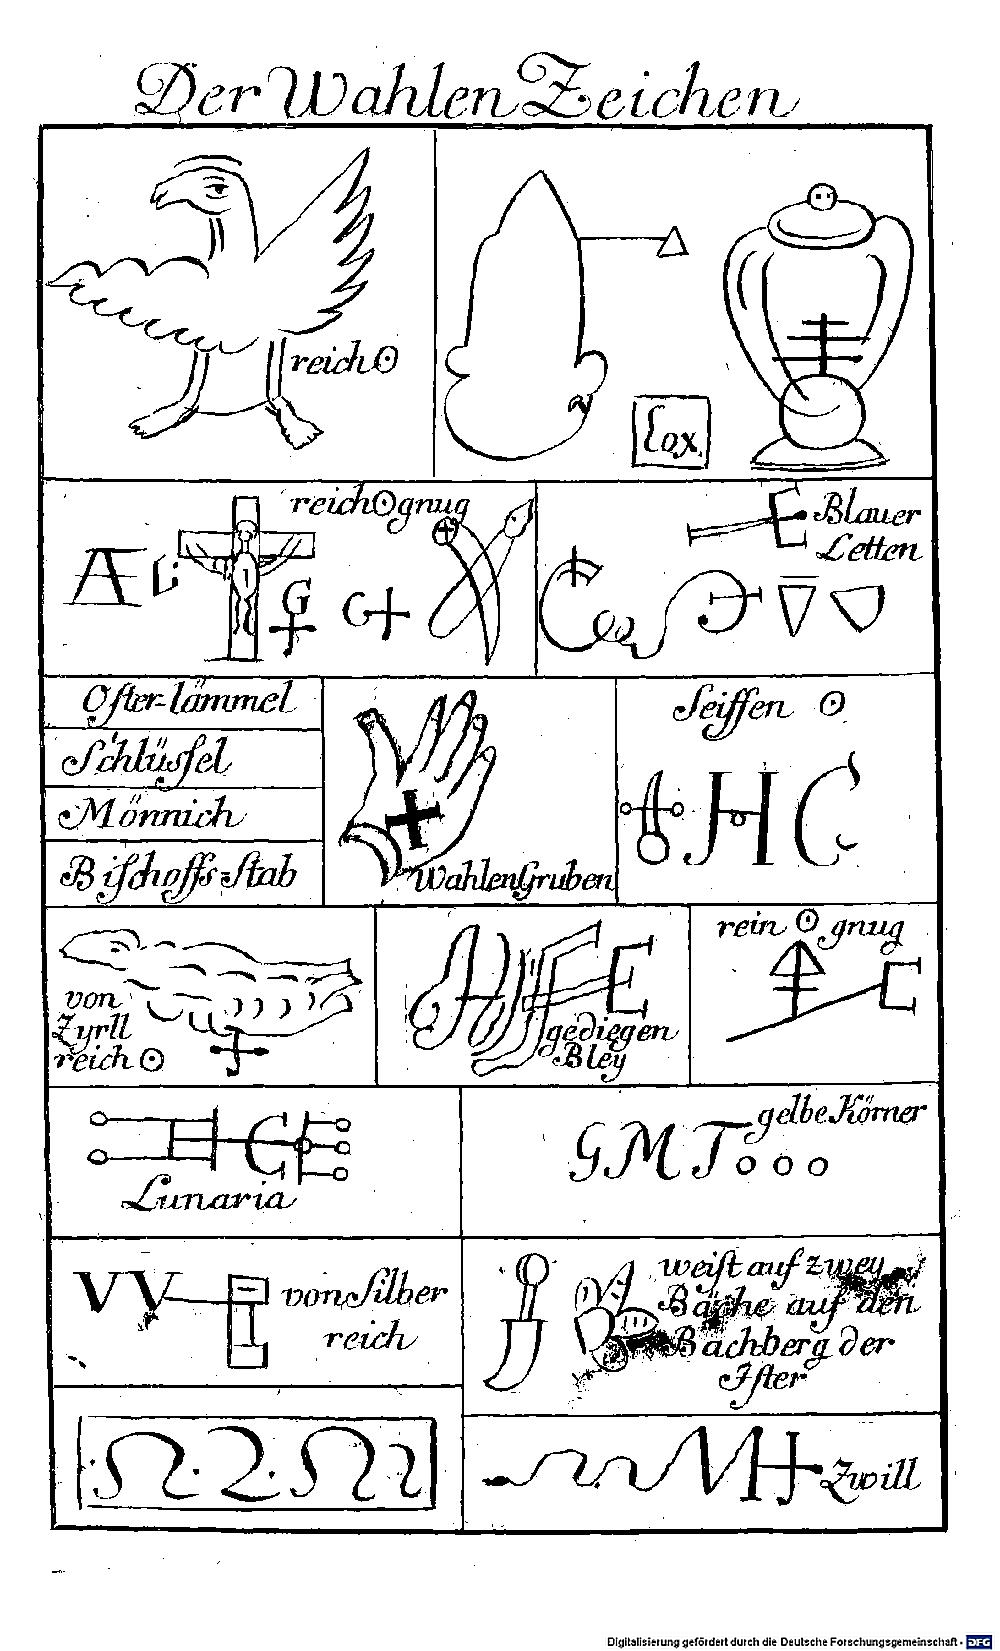 Der Wahlen Zeichen
reich☉
Lox.
reich☉gnug
A
G
G
Blauer
Letten
Oster-lämmel
Schlüssel
Mönnich
Bischoffs-stab
WahlenGruben
Seiffen ☉
H C
von
Zyrll
reich ☉
gediegen
Bley
rein ☉ gnug
Lunaria
gelbe Körner
G M T o o o
VV
von Silber
reich
weist auf zwey
Bäche auf den
Bachberg der
Iser
Zwill
Digitalisierung gefördert durch die Deutsche Forschungsgemeinschaft - DFG